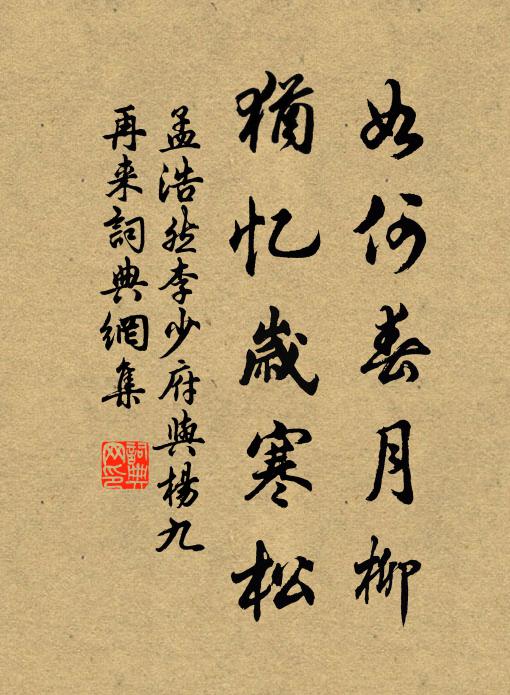 如何春月柳
猶忆歲寒松
孟浩然李少府與楊九
再来詞典網集
詞典
网印